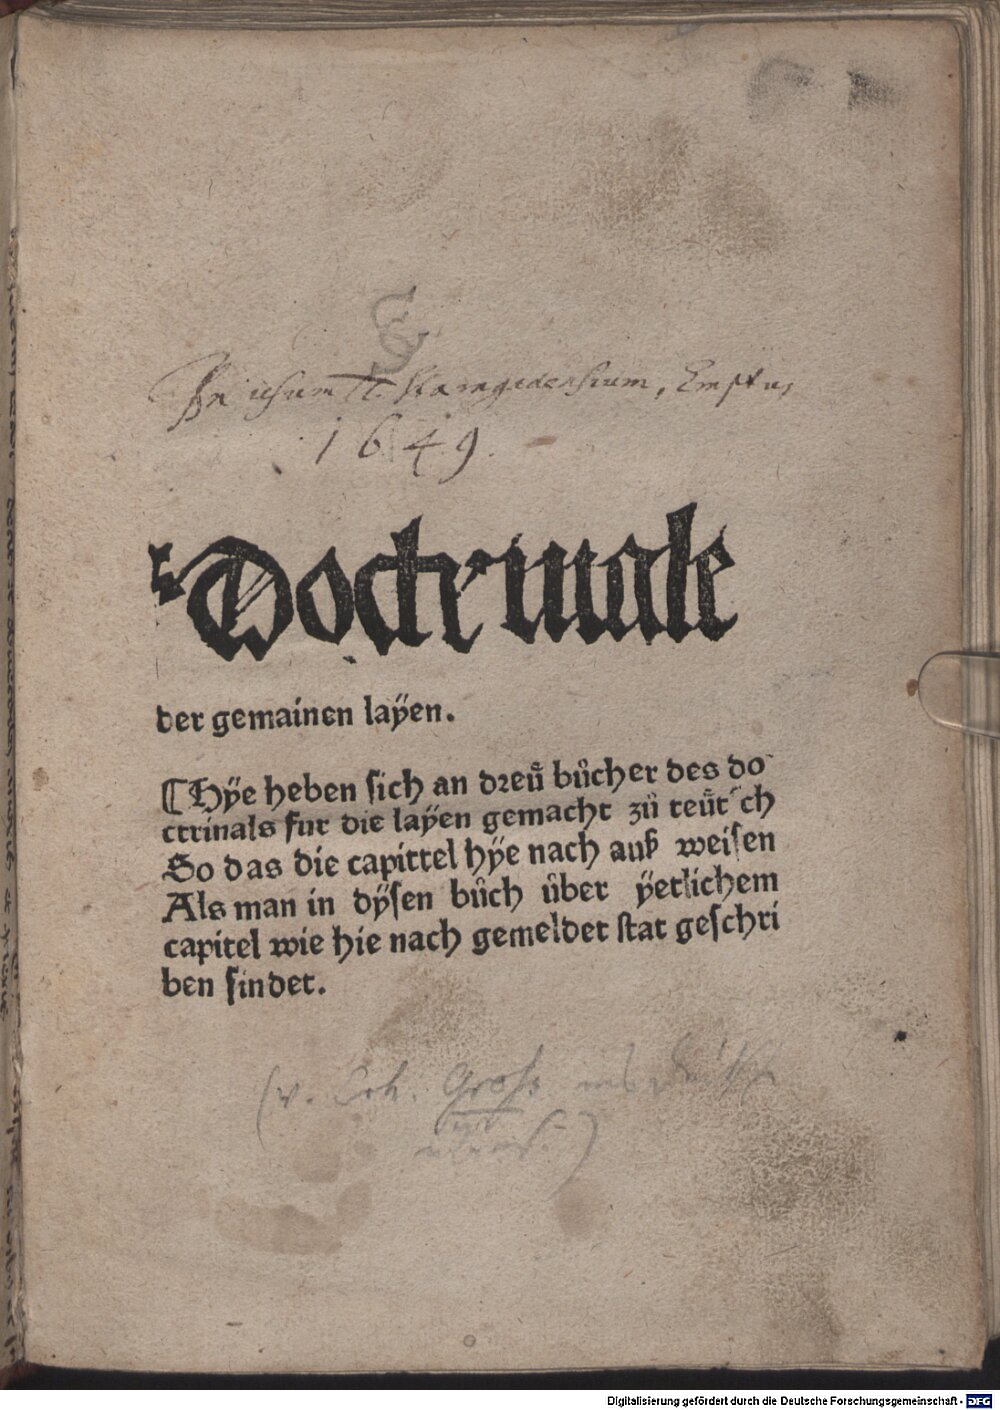 In usum
1649.
Doctrinale
der gemainen laÿen.
¶Hÿe heben sich an dreu̇̈ bůcher des do
ctrinals fur die laÿen gemacht zů teu̇̈tsch
So das die capittel hÿe nach auß weisen
Als man in dÿsen bůch ůber ÿetlichem
capitel wie hie nach gemeldet stat geschri
ben findet.
(v. Erh. Groß ins
Digitalisierung gefördert durch die Deutsche Forschungsgemeinschaft - DFG